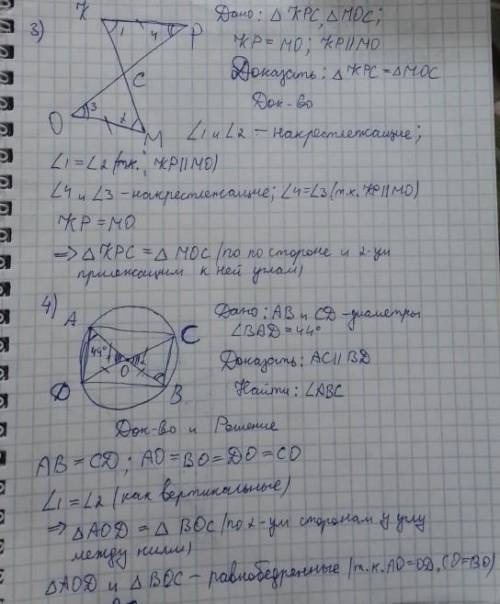 3)
K
P
1
4
C
O
3
2
M
Дано: △ KPC, △MOC;
KP = MO; KP || MO
Доказать: △ KPC = △MOC
Док-во
∠1 и ∠2 - накрестлежащие;
∠1 = ∠2 (т.к.; KP || MO)
∠4 и ∠3 - накрестлежащие; ∠4 = ∠3 (т.к. KP || MO)
KP = MO
⇒ △ KPC = △ MOC (по по стороне и 2-ум
прилежащим к ней углам)
4)
A
C
44°
O
D
B
Дано: AB и CD - диаметры
∠BAD = 44°
Доказать: AC || BD
Найти: ∠ABC
Док-во и Решение
AB = CD; AO = BO = DO = CO
∠1 = ∠2 (как вертикальные)
⇒ △AOD = △ BOC (по 2-ум сторонам у углу
между ними)
△AOD и △BOC - равнобедренные (т.к. AO = OD, CO = BO)